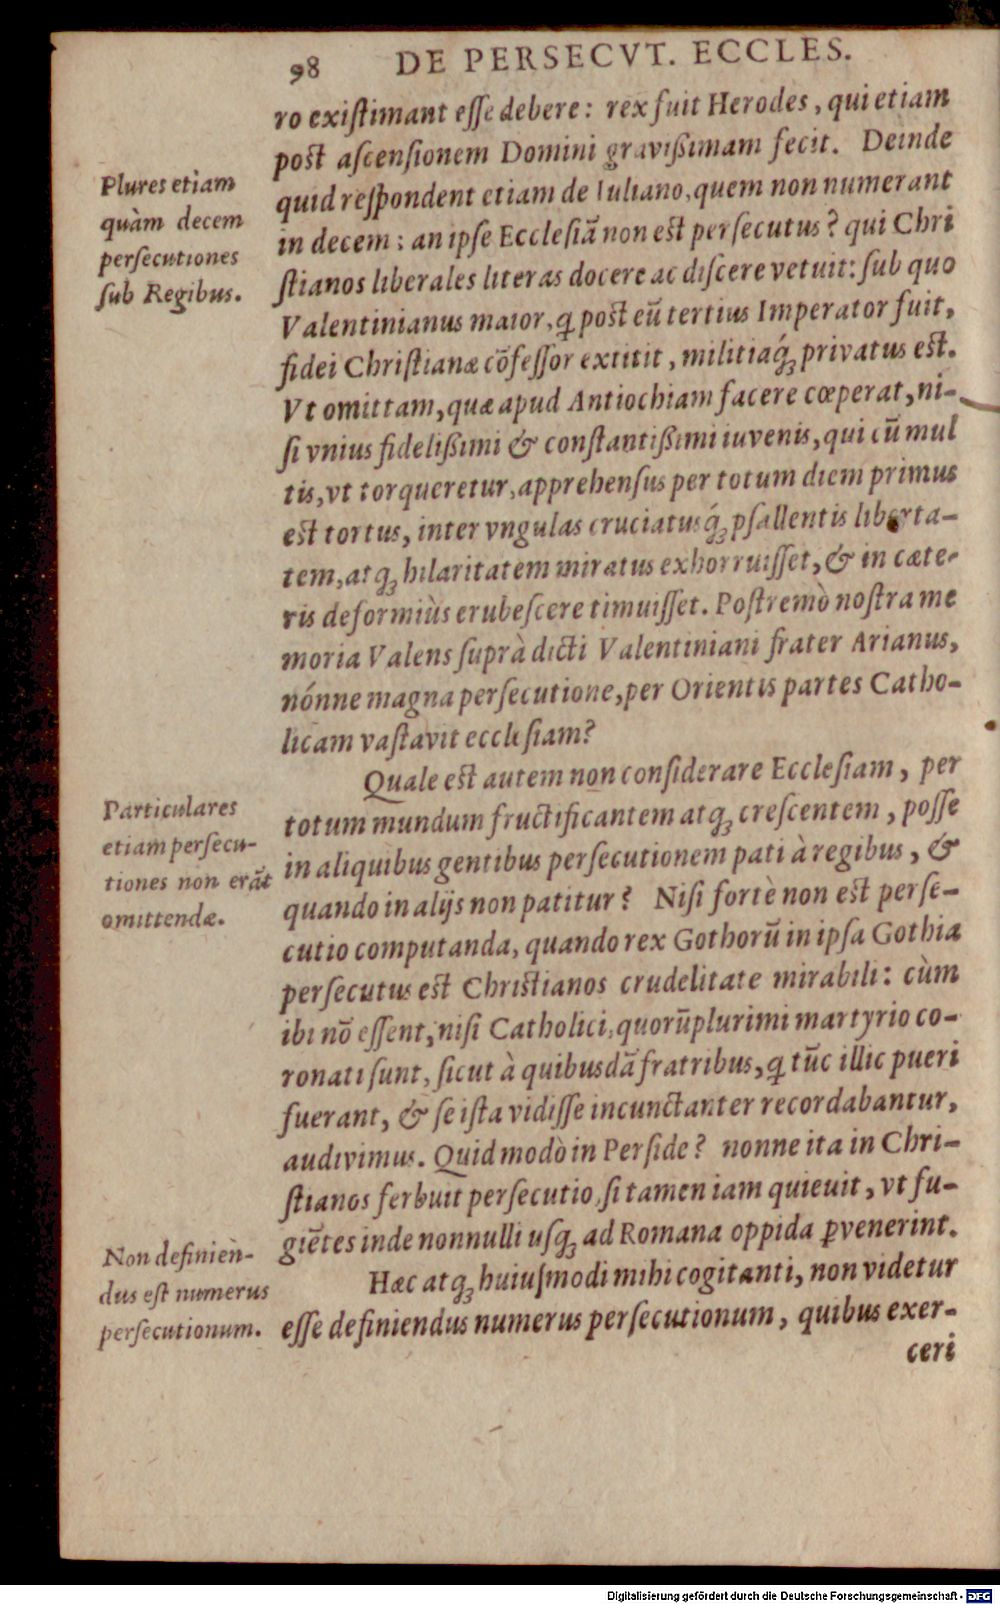 98 DE PERSECVT. ECCLES.
ro exiſtimant eſſe debere: rex fuit Herodes, qui etiam
poſt aſcenſionem Domini gravißimam fecit. Deinde
Plures etiam
quid reſpondent etiam de Iuliano, quem non numerant
quàm decem
in decem: an ipſe Eccleſiã non eſt perſecutus? qui Chri
persecutiones
ſtianos liberales literas docere ac diſcere vetuit: ſub quo
ſub Regibus.
Valentinianus maior, ꝗ poſt eũ tertius Imperator fuit,
fidei Chriſtianæ cõfeſſor extitit, militiaq́ꝫ privatus eſt.
Vt omittam, quæ apud Antiochiam facere cœperat, ni-
ſi vnius fidelißimi & conſtantißimi iuvenis, qui cũ mul
tis, vt torqueretur, apprehenſus per totum diem primus
eſt tortus, inter vngulas cruciatusq́ꝫ pſallentis liberta-
tem, atqꝫ hilaritatem miratus exhorruiſſet, & in cæte-
ris deformiùs erubeſcere timuiſſet. Poſtremò noſtra me
moria Valens ſuprà dicti Valentiniani frater Arianus,
nónne magna perſecutione, per Orientis partes Catho-
licam vaſtavit eccleſiam?
Quale eſt autem non conſiderare Eccleſiam, per
Particulares
totum mundum fructificantem atqꝫ creſcentem, poſſe
etiam perſecu-
in aliquibus gentibus perſecutionem pati à regibus, &
tiones non erãt
quando in alijs non patitur? Niſi fortè non eſt perſe-
omittendæ.
cutio computanda, quando rex Gothorũ in ipſa Gothia
perſecutus eſt Chriſtianos crudelitate mirabili: cùm
ibi nõ eſſent, niſi Catholici, quorũ plurimi martyrio co-
ronati ſunt, ſicut à quibusdã fratribus, ꝗ tũc illic pueri
fuerant, & ſe iſta vidiſſe incunctanter recordabantur,
audivimus. Quid modò in Perſide? nonne ita in Chri-
ſtianos ferbuit perſecutio, ſi tamen iam quieuit, vt fu-
giẽtes inde nonnulli uſqꝫ ad Romana oppida ꝑvenerint.
Non definien-
Hæc atqꝫ huiuſmodi mihi cogitanti, non videtur
dus eſt numerus
eſſe definiendus numerus perſecutionum, quibus exer-
perſecutionum.
ceri
Digitalisierung gefördert durch die Deutsche Forschungsgemeinschaft - DFG